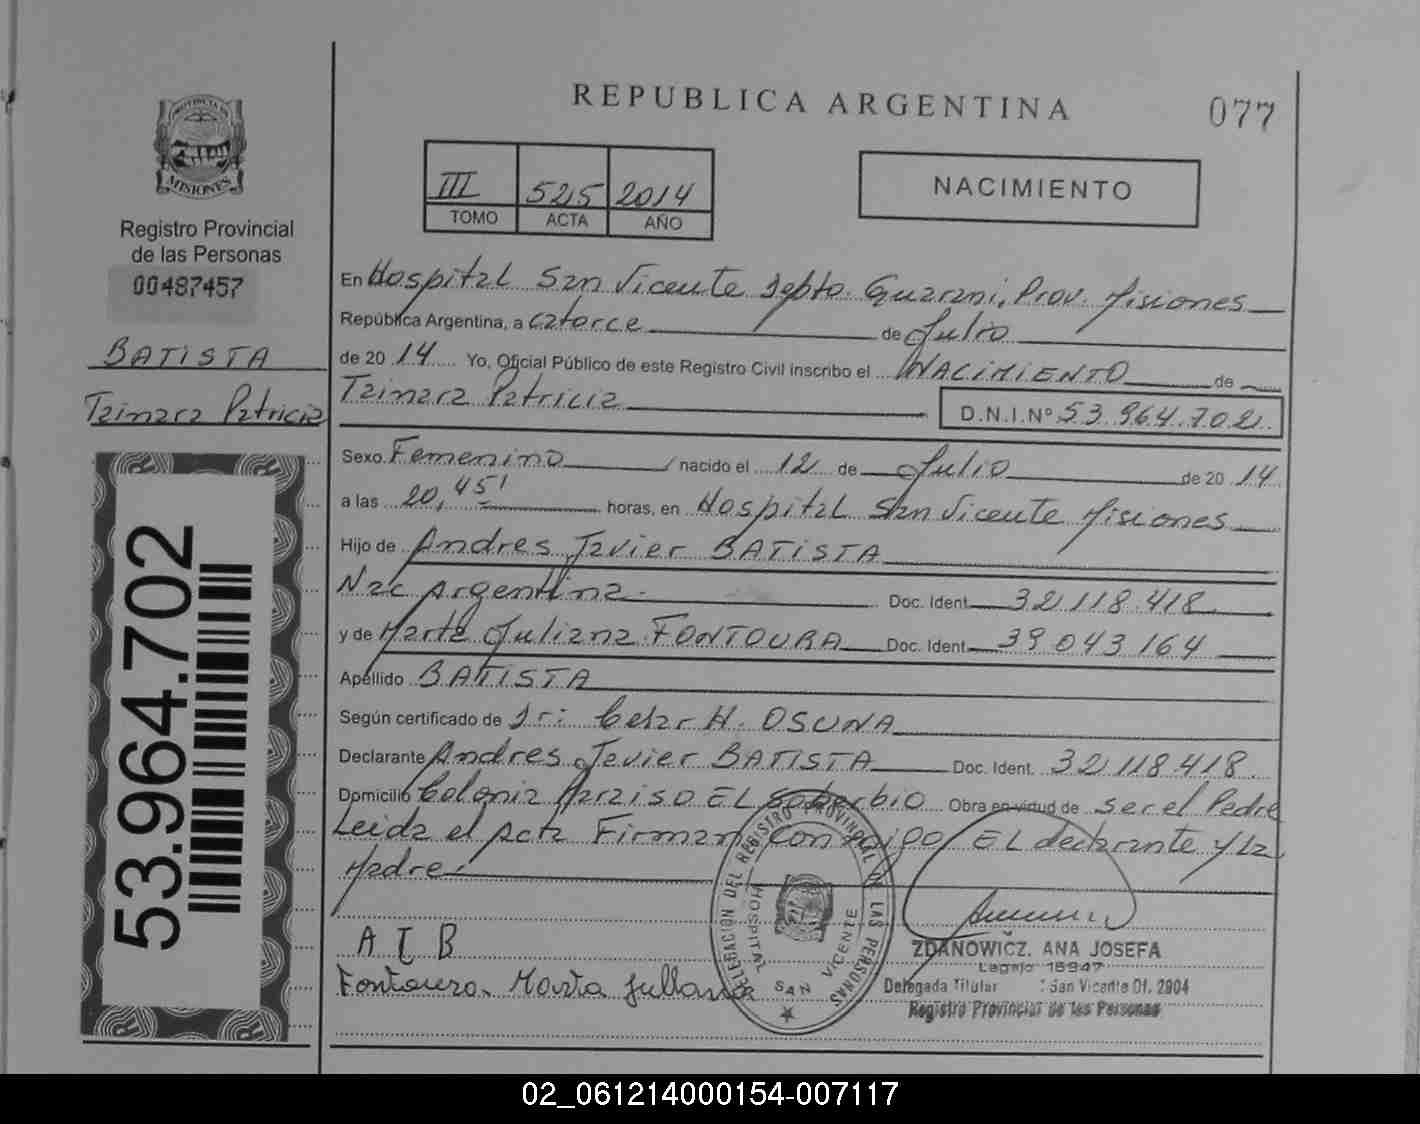 PROVINCIA DE
MISIONES
Registro Provincial
de las Personas
00487457
BATISTA
Tainara Patricia
53.964.702
REPUBLICA ARGENTINA
077
III 525 2014
TOMO ACTA AÑO
NACIMIENTO
En Hospital San Vicente Depto. Guarani, Prov. Misiones
República Argentina, a catorce de Julio
de 20 14 Yo, Oficial Público de este Registro Civil inscribo el NACIMIENTO de
Tainara Patricia D.N.I.Nº 53.964.702
Sexo Femenino nacido el 12 de Julio de 20 14
a las 20,45' horas, en Hospital San Vicente Misiones
Hijo de Andres Javier BATISTA
Nac Argentina Doc. Ident. 32.118.418
y de Marta Juliana FONTOURA Doc. Ident. 39 043 164
Apellido BATISTA
Según certificado de Dr: Cesar H. OSUNA
Declarante Andres Javier BATISTA Doc. Ident. 32 118 418
Domicilio Colonia Paraiso EL Soberbio Obra en virtud de ser el Padre
Leida el Acta Firman conmigo EL declarante y La
Madre
A J B
Fontoura Marta Juliana
DELEGACION DEL REGISTRO PROVINCIAL DE LAS PERSONAS
HOSPITAL SAN VICENTE
ZDANOWICZ, ANA JOSEFA
Legajo 15947
Delegada Titular San Vicente Of. 2904
Registro Provincial de las Personas
02_061214000154-007117